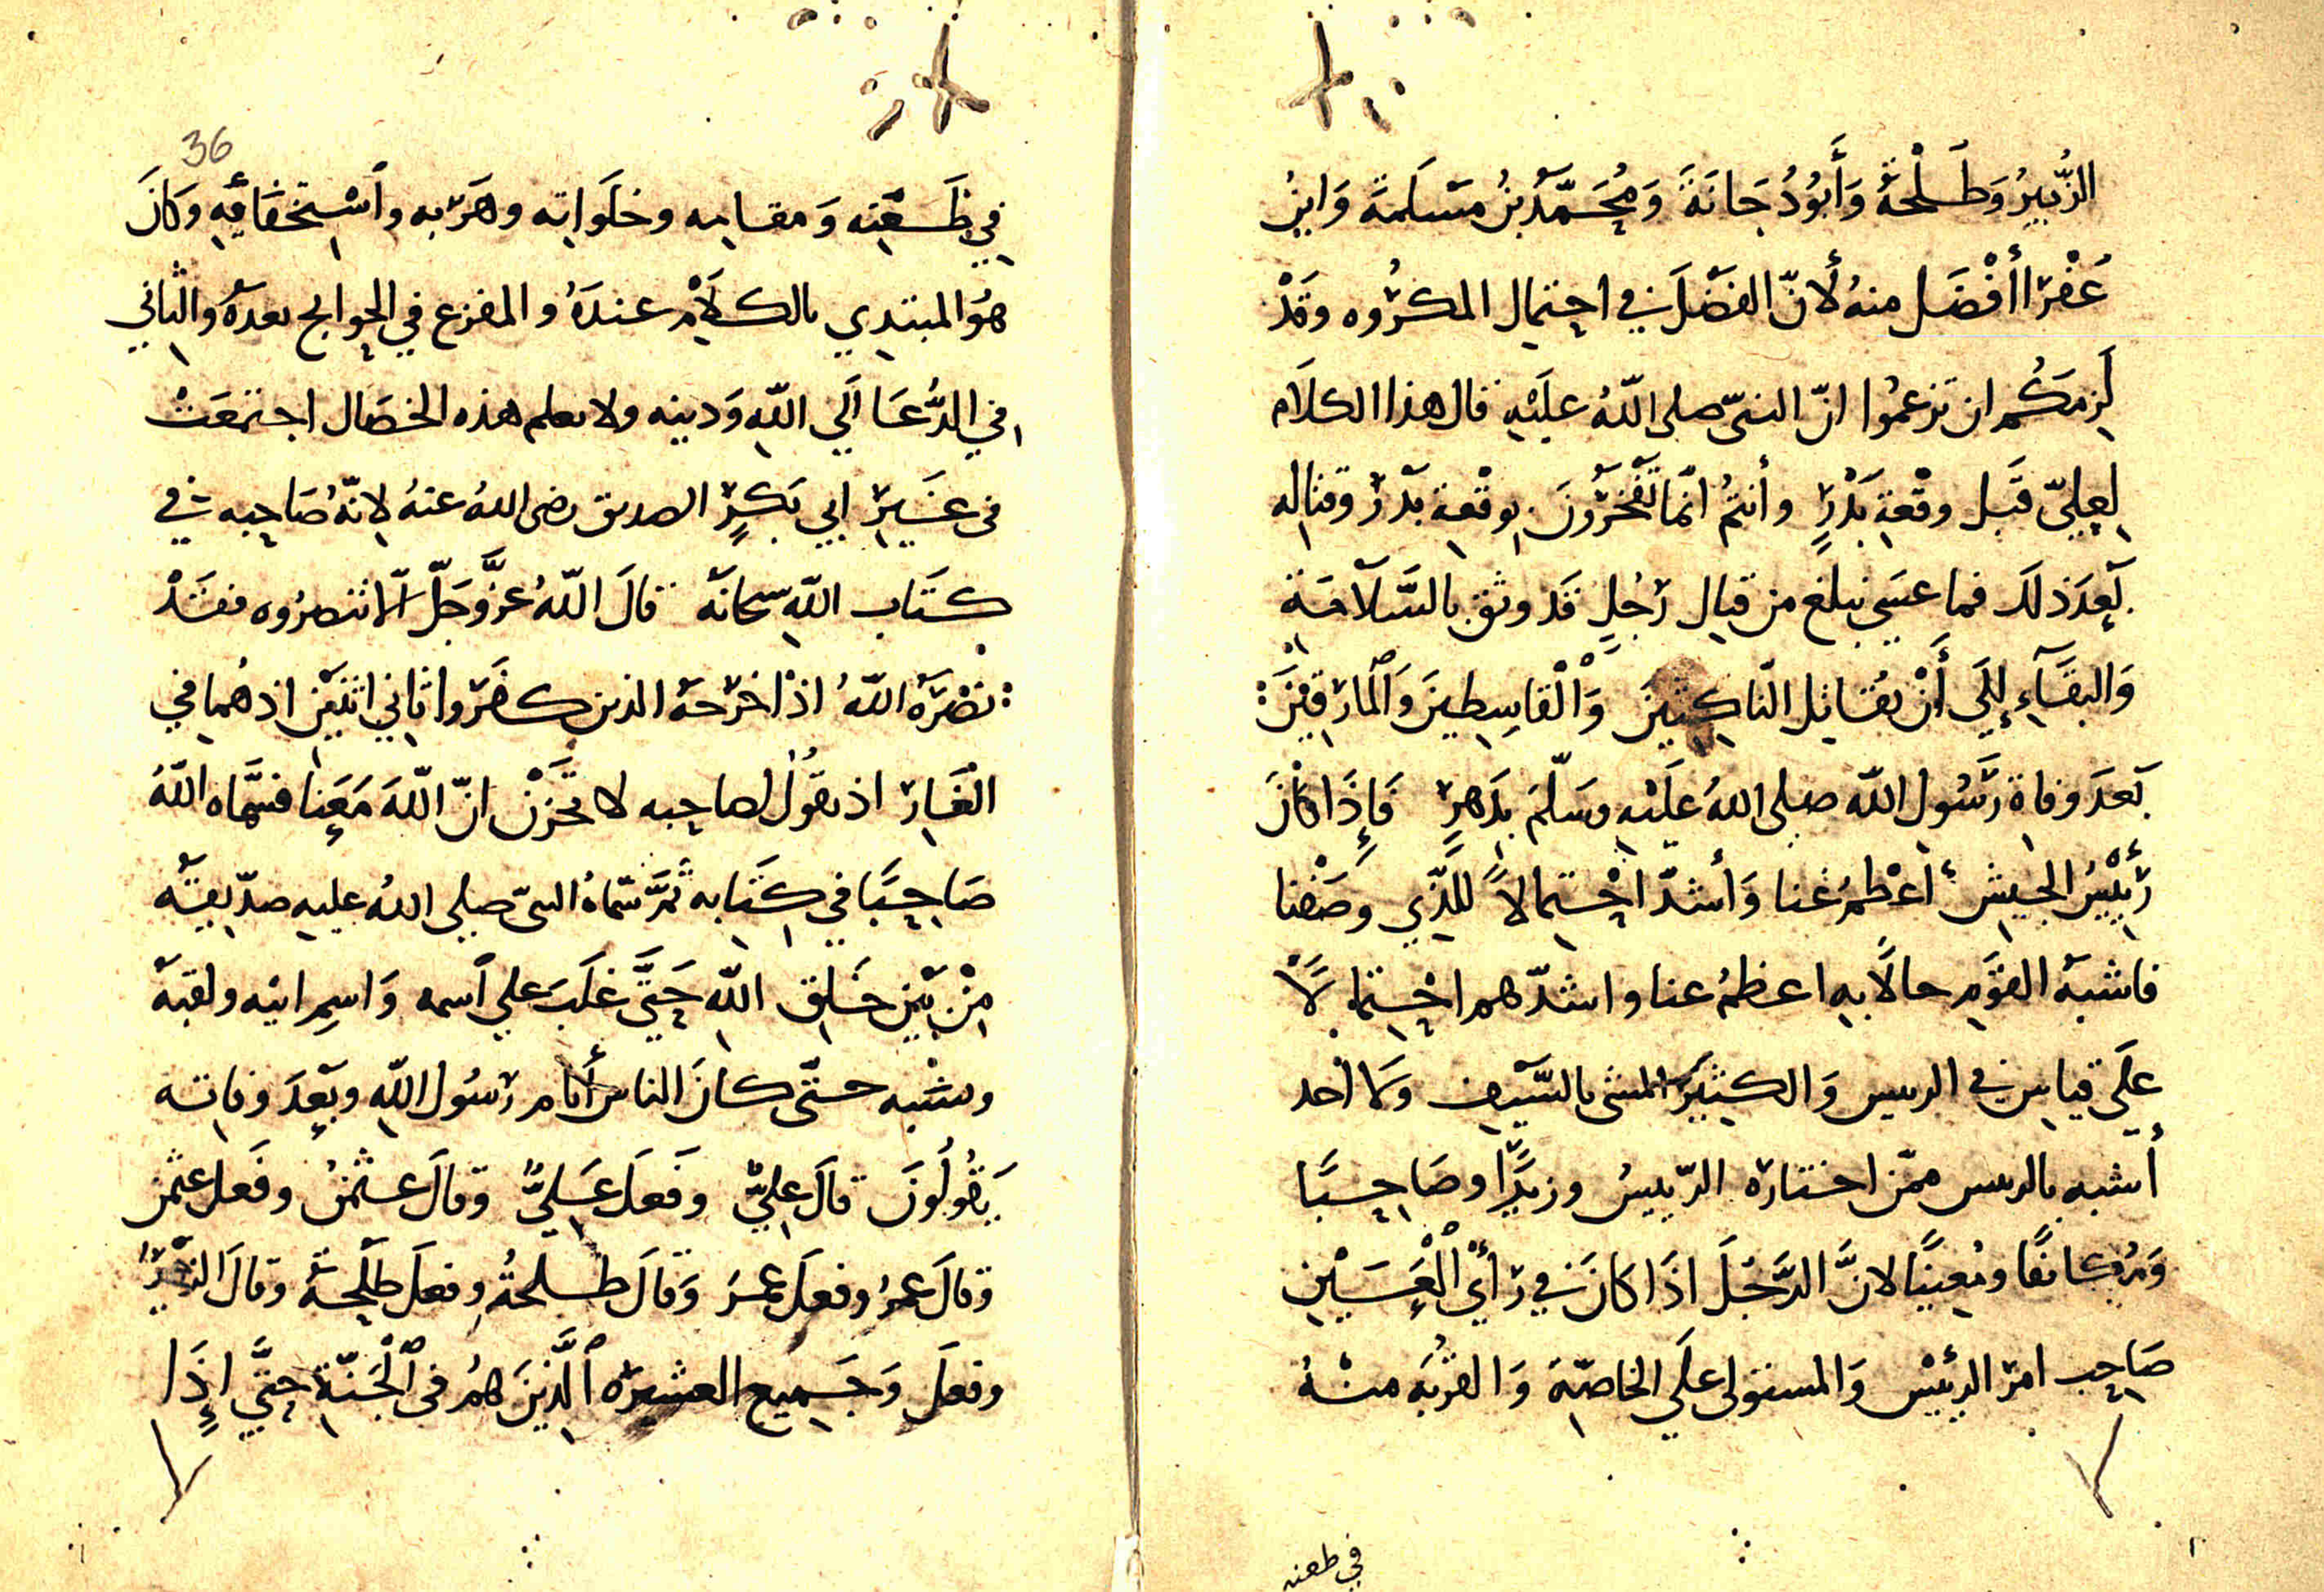 الزُّبَيرُ وَطَلْحَةُ وَأَبُو دُجَانَةَ وَمُحَمَّدُ بنُ مَسْلَمَةَ وَابنُ
عَفْرَا أَفْضَل منهُ لأنّ الفَضْلَ في احتِمال المكرُوه وقَدْ
لَزِمَكُم ان تزعمُوا انّ النبيّ صلى اللّهُ عليْهِ قال هذا الكلَام
لِعليّ قَبل وقْعَةِ بَدْرٍ وأنتُم انّما تَفْخَرُونَ بِوقْعةِ بَدْرٍ وقتاله
بَعدَ ذلك فما عَسَى نبلغ من قتال رَجُلٍ قَد وثق بالسَّلَامَةِ
وَالبقَاءِ إِلَى أَنْ يُقَاتِل النّاكِثِينَ وَالْقَاسِطِينَ وَالْمَارِقِينَ
بَعدَ وفاة رَسُول اللّه صلى اللهُ علَيْهِ وسَلّمَ بِدَهرٍ فَإِذَا كَانَ
رَئِيْسُ الجَيشِ أَعْظمُ غنا وَأشدّ احْتِمالاً لِلَّذِي وَصَفْنا
فاشبَهُ القَوْمِ حالًا بِهِ اعظمُ غنا واشدّهم احْتِمالًا
عَلَى قياسٍ في الرىيس وَالكثِيرَ المشى بالسَّيفِ وكما احد
أشبه بالرىىس ممّن اختارَه الرّئيسُ وزيرًا وصَاحِبًا
وَمُكانفًا ومُعِينًا لانَّ الرَّجُلَ اذَا كانَ في رَأْيِ الْعَيْنِ
صَاحِب امرِ الرئيْسِ وَالمستولي عَلَى الخاصّةِ وَالقُربَه منْهُ
في طعنه
36
في ظَعْنِه وَمقامه وخلَواته وهَرَبِه واسْتِخفَائِهِ وَكَانَ
هُوَ المبتدِي بالكلَامِ عندَهُ والمفزع في الحوايج بعدَهُ وَالثاني
في الدُّعَا اِلَى اللّهِ وَدينه ولا نعلم هذه الخصَال اجتمَعَتْ
في غَيرِ ابي بَكرٍ الصديق رضى اللهُ عنهُ لانّهُ صَاحِبه في
كتَاب اللّهِ سبحانَه قالَ اللّهُ عزَّ وجَلَّ الّا تنصرُوه فقَدْ
نَصَرَهُ اللّهُ اذْ اخرَجَهُ الذين كفَروا ثانيَ اثنَيْنِ اذ هُما في
الغَارِ اذ يقُولُ لصاحِبه لا تحْزَنْ انّ اللّهَ مَعَنا فسمَّاه اللّهُ
صَاحِبًا في كِتَابه ثمَّ سَمّاهُ النبيّ صلى اللهُ عليهِ صدّيقه
مِنْ بَيْنِ خَلقِ اللّهِ حَتَّى غلَبَ على اسمه وَاسمِ ابيه ولقبه
ونسَبه حتَّى كانَ الناسُ أيّام رَسُول اللّهِ وبَعدَ وفاته
يَقُولُونَ قالَ عليٌّ وفَعلَ عَليٌّ وقالَ عثمنُ وفَعلَ عثمن
وقالَ عمرُ وفعلَ عمرُ وَقالَ طلحةُ وفعلَ طلحةُ وقالَ الزبيرُ
وفعلَ وَجَمِيعِ العشرَه الَّذِينَ هُم في الْجَنّةِ حَتَّى إِذَا